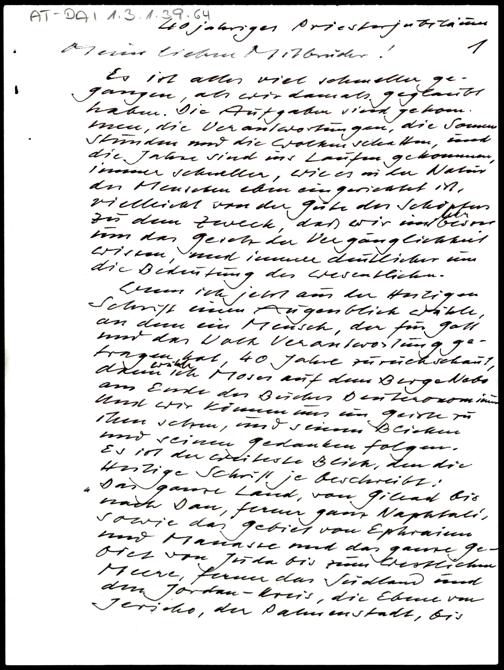 AT-DAI 1.3.1.39.64
40jähriges Priesterjubiläum
1
Meine lieben Mitbrüder!
Es ist alles viel schneller ge-
gangen, als wir damals geglaubt
haben. Die Aufgaben sind gekom-
men, die Verantwortungen, die Sonnen
stunden und die Wolkenschatten, und
die Jahre sind ins Laufen gekommen,
immer schneller, wie es in der Natur
des Menschen eben eingerichtet ist,
vielleicht von der Güte des Schöpfers
zu dem Zweck, daß wir immer besser
um das Gesetz der Vergänglichkeit
wissen, und immer deutlicher um
die Bedeutung des Wesentlichen.
Wenn ich jetzt aus der Heiligen
Schrift einen Augenblick wähle,
an dem ein Mensch, der für Gott
und das Volk Verantwortung ge-
tragen hat, 40 Jahre zurückschaut,
dann wähle ich Moses auf dem Berge Nebo
am Ende des Buches Deuteronomium
Und wir können uns im Geiste zu
ihm setzen, und seinen Blicken
und seinen Gedanken folgen.
Es ist der weiteste Blick, den die
Heilige Schrift je beschreibt:
"Das ganze Land, von Gilead bis
nach Dan, ferner ganz Naphtali,
sowie das Gebiet von Ephraim
und Manasse und das ganze Ge-
biet von Juda bis zum westlichen
Meere, ferner das Südland und
den Jordan-Kreis, die Ebene von
Jericho, der Palmenstadt, bis